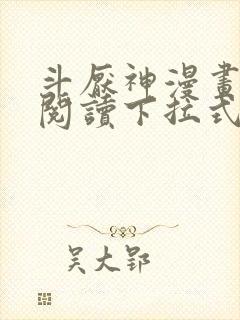 斗厭神漫畫
閱讀下拉式
吴大郢